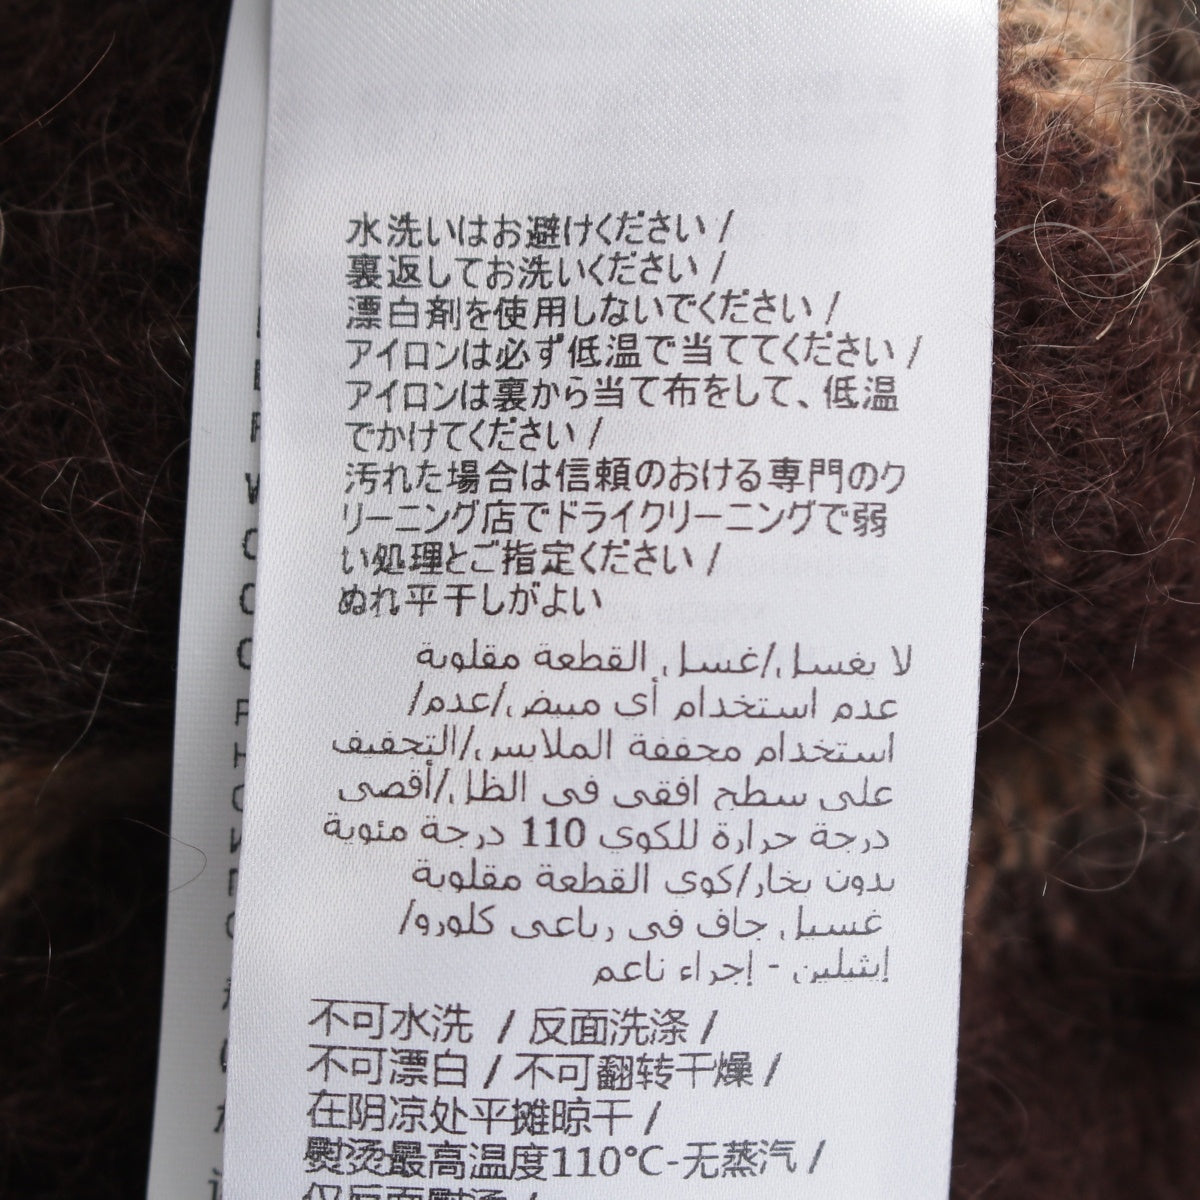 水洗いはお避けください /
裏返してお洗いください /
漂白剤を使用しないでください /
アイロンは必ず低温で当ててください /
アイロンは裏から当て布をして、低温
でかけてください /
汚れた場合は信頼のおける専門のク
リーニング店でドライクリーニングで弱
い処理とご指定ください /
ぬれ平干しがよい
لا يغسل/غسل القطعة مقلوبة
عدم استخدام أي مبيض/عدم/
استخدام مجففة الملابس/التجفيف
على سطح افقى فى الظل/أقصى
درجة حرارة للكوي 110 درجة مئوية
بدون بخار/كوي القطعة مقلوبة
غسيل جاف فى رباعى كلورو/
إيثيلين - إجراء ناعم
不可水洗 / 反面洗涤 /
不可漂白 / 不可翻转干燥 /
在阴凉处平摊晾干 /
熨烫最高温度110°C-无蒸汽 /
仅反面熨烫 /